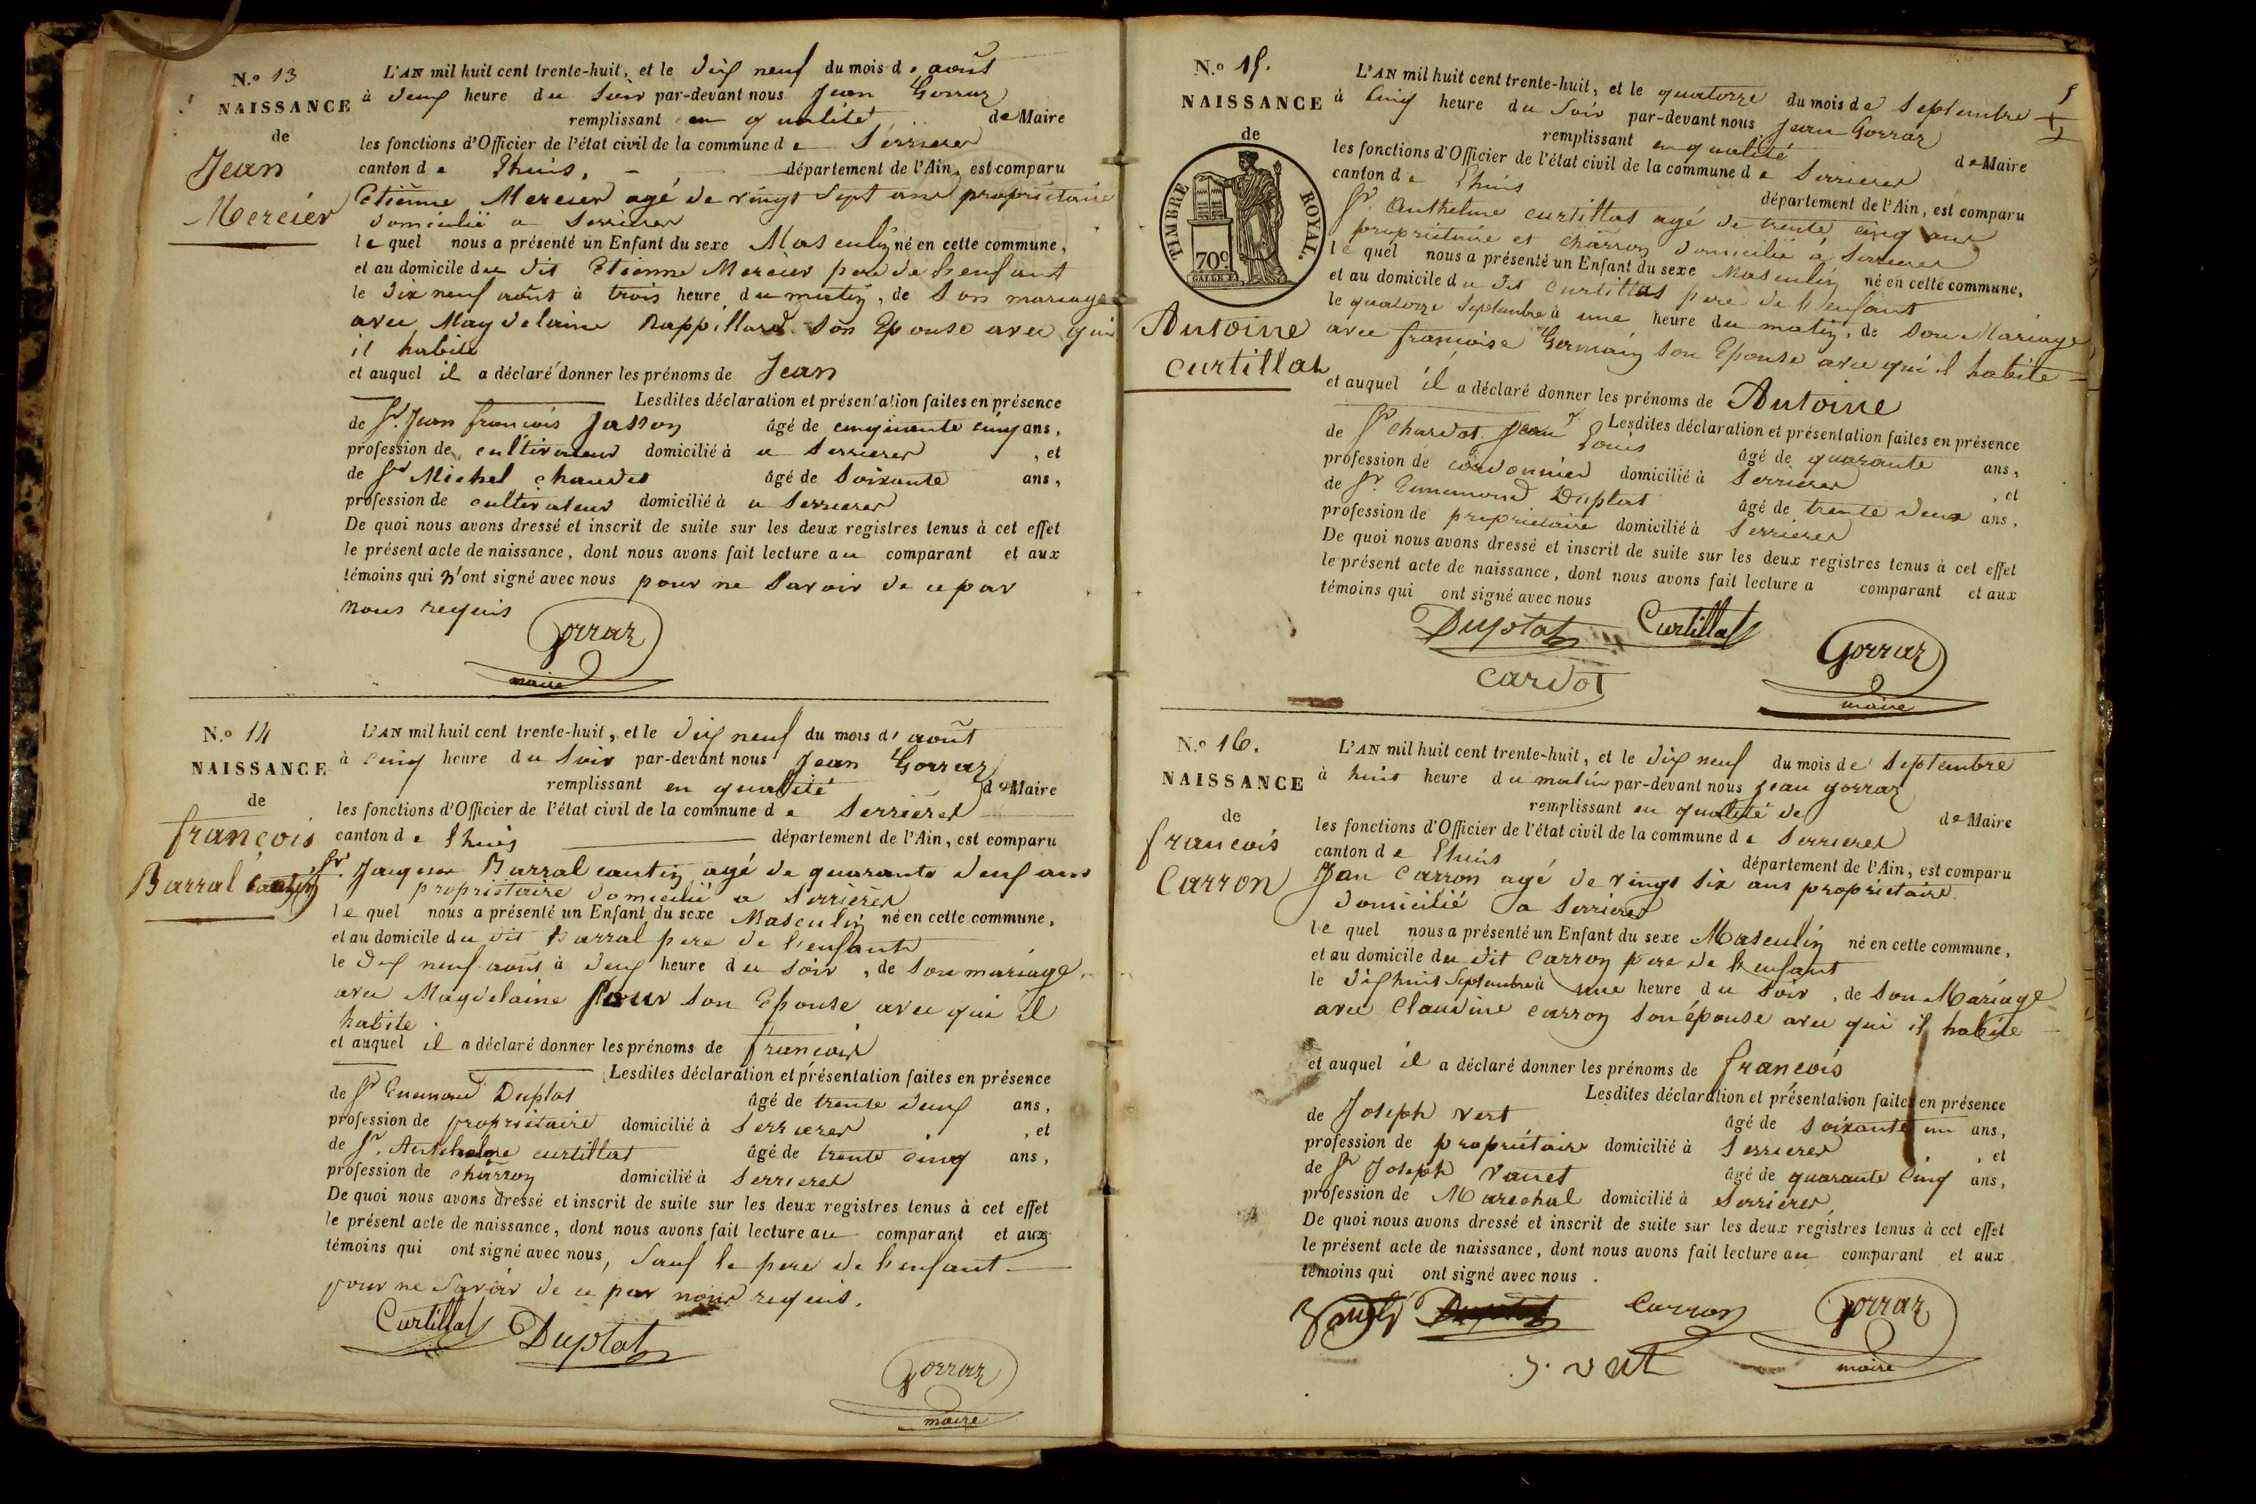 N.o 13
NAISSANCE
de
Jean
Mercier
L'AN mil huit cent trente-huit, et le dix neuf du mois d'août
à deux heure du soir par-devant nous Jean Gorraz
remplissant en qualité de Maire
les fonctions d'Officier de l'état civil de la commune de Serrieres
canton de Lhuis, département de l'Ain, est comparu
Etienne Mercier agé de vingt sept ans propriétaire
domicilié a Serrieres
lequel nous a présenté un Enfant du sexe Masculin né en cette commune,
et au domicile du dit Etienne Mercier pere de l'enfant
le dix neuf août à trois heure du matin, de son mariage
avec Magdelaine Rappillard son Epouse avec qui
il habite
et auquel il a déclaré donner les prénoms de Jean
Lesdites déclaration et présentation faites en présence
de Sr. Jean francois Jasson âgé de cinquante cinq ans,
profession de cultivateur domicilié à a Serrieres, et
de Sr Michel chaudet âgé de soixante ans,
profession de cultivateur domicilié à a Serrieres
De quoi nous avons dressé et inscrit de suite sur les deux registres tenus à cet effet
le présent acte de naissance, dont nous avons fait lecture au comparant et aux
témoins qui n'ont signé avec nous pour ne savoir de ce par
nous requis
Gorraz
maire
N.o 14
NAISSANCE
de
françois
Barral cautin
L'AN mil huit cent trente-huit, et le dix neuf du mois d'août
à cinq heure du soir par-devant nous Jean Gorraz
remplissant en qualité de Maire
les fonctions d'Officier de l'état civil de la commune de Serrieres
canton de Lhuis département de l'Ain, est comparu
Sr. Jaques Barral cautin agé de quarante deux ans
propriétaire domicilié a Serrieres
lequel nous a présenté un Enfant du sexe Masculin né en cette commune,
et au domicile du dit Barral pere de l'enfant
le dix neuf août à deux heure du soir, de son mariage
avec Magdelaine son Epouse avec qui il
habite.
et auquel il a déclaré donner les prénoms de francois
Lesdites déclaration et présentation faites en présence
de Sr Ennemond Duplat âgé de trente deux ans,
profession de propriétaire domicilié à Serrieres, et
de Sr. Anthelme curtillat âgé de trente cinq ans,
profession de charron domicilié à Serrieres
De quoi nous avons dressé et inscrit de suite sur les deux registres tenus à cet effet
le présent acte de naissance, dont nous avons fait lecture au comparant et aux
témoins qui ont signé avec nous, sauf le pere de l'enfant
pour ne savoir de ce par nous requis.
Curtillat Duplat
Gorraz
maire
N.o 15.
NAISSANCE
de
TIMBRE ROYAL.
70c
Antoine
curtillat
L'AN mil huit cent trente-huit, et le quatorze du mois de Septembre
à cinq heure du soir par-devant nous Jean Gorraz
remplissant en qualité de Maire
les fonctions d'Officier de l'état civil de la commune de Serrieres
canton de Lhuis département de l'Ain, est comparu
Sr. Anthelme curtillat agé de trente cinq ans
propriétaire et charron domicilié à Serrieres
lequel nous a présenté un Enfant du sexe Masculin né en cette commune,
et au domicile du dit curtillat pere de l'enfant
le quatorze Septembre à une heure du matin, de son Mariage
avec françoise Germain son Epouse avec qui il habite
et auquel il a déclaré donner les prénoms de Antoine
Lesdites déclaration et présentation faites en présence
de Sr chardot Jean Louis âgé de quarante ans,
profession de cordonnier domicilié à Serrieres, et
de Sr. Ennemond Duplat âgé de trente deux ans,
profession de propriétaire domicilié à Serrieres
De quoi nous avons dressé et inscrit de suite sur les deux registres tenus à cet effet
le présent acte de naissance, dont nous avons fait lecture a comparant et aux
témoins qui ont signé avec nous
Duplat Curtillat
Gorraz
cardot
maire
N.o 16.
NAISSANCE
de
francois
Carron
L'AN mil huit cent trente-huit, et le dix neuf du mois de Septembre
à huit heure du matin par-devant nous jean gorraz
remplissant en qualité de de Maire
les fonctions d'Officier de l'état civil de la commune de Serrieres
canton de Lhuis département de l'Ain, est comparu
Jean Carron agé de vingt six ans propriétaire
domicilié a Serrieres
lequel nous a présenté un Enfant du sexe Masculin né en cette commune,
et au domicile du dit Carron pere de l'enfant
le dix huit Septembre à une heure du soir, de son Mariage
avec Claudine carron son épouse avec qui il habite
et auquel il a déclaré donner les prénoms de francois
Lesdites déclaration et présentation faites en présence
de Joseph vert âgé de soixante un ans,
profession de propriétaire domicilié à Serrieres, et
de Sr Joseph âgé de quarante cinq ans,
profession de Marechal domicilié à Serrieres
De quoi nous avons dressé et inscrit de suite sur les deux registres tenus à cet effet
le présent acte de naissance, dont nous avons fait lecture au comparant et aux
témoins qui ont signé avec nous.
Carron Gorraz
J. vert
maire